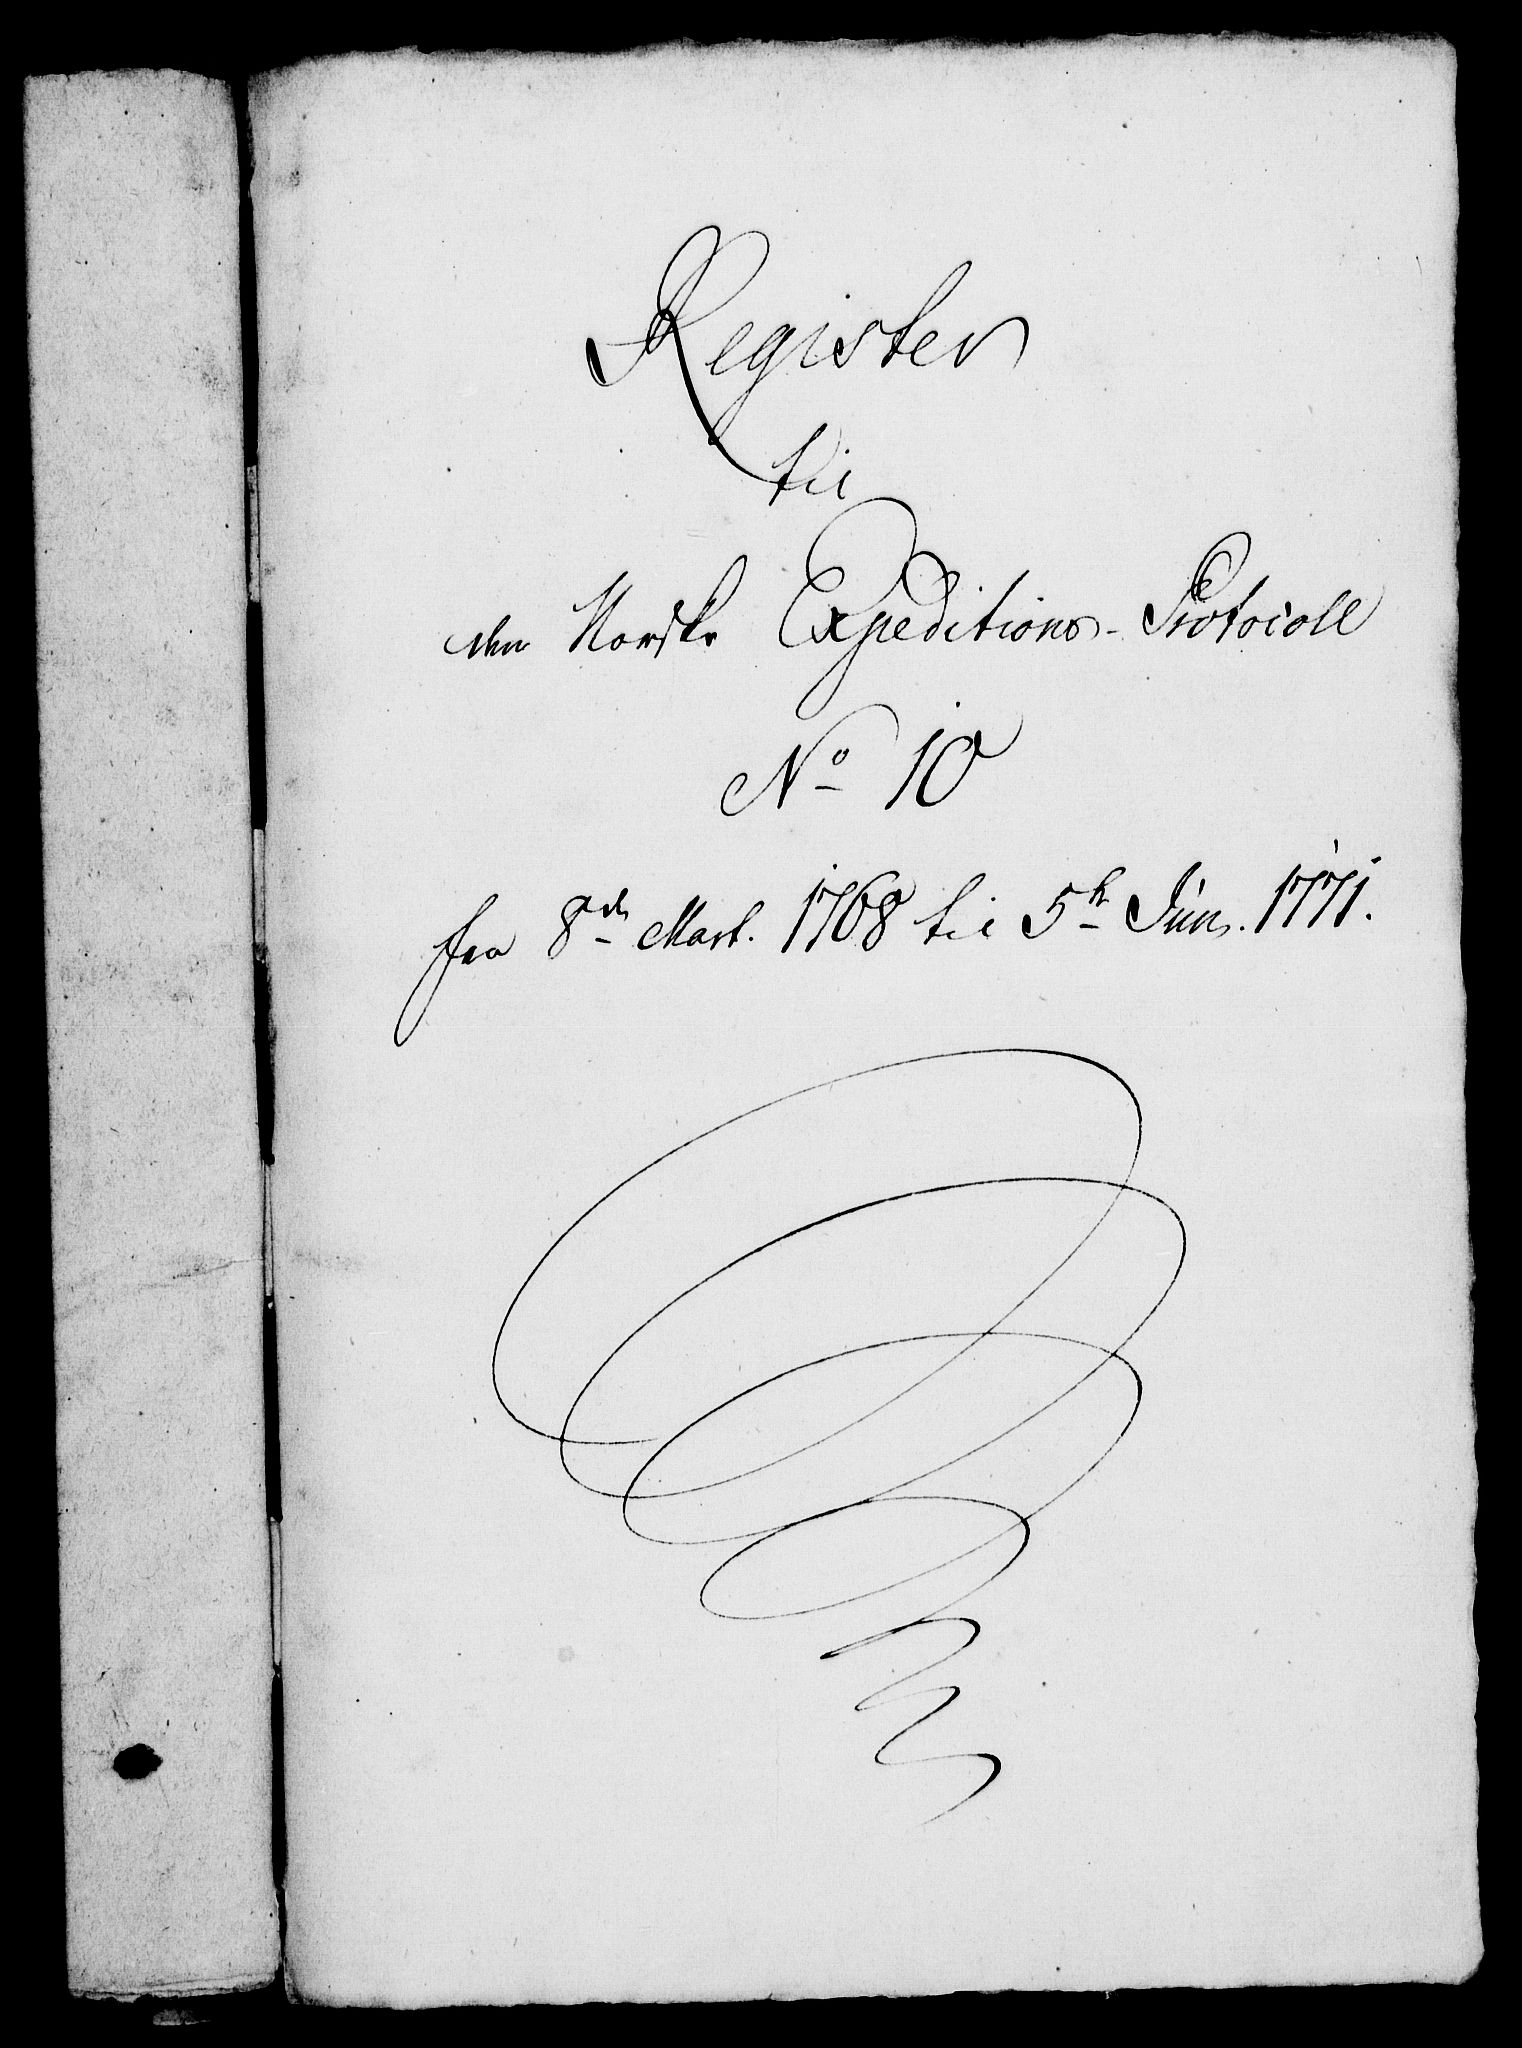 Register
til
den Norske Expeditions-Protocoll
No 10
fra 8de Mart. 1768 til 5te Jun. 1771.